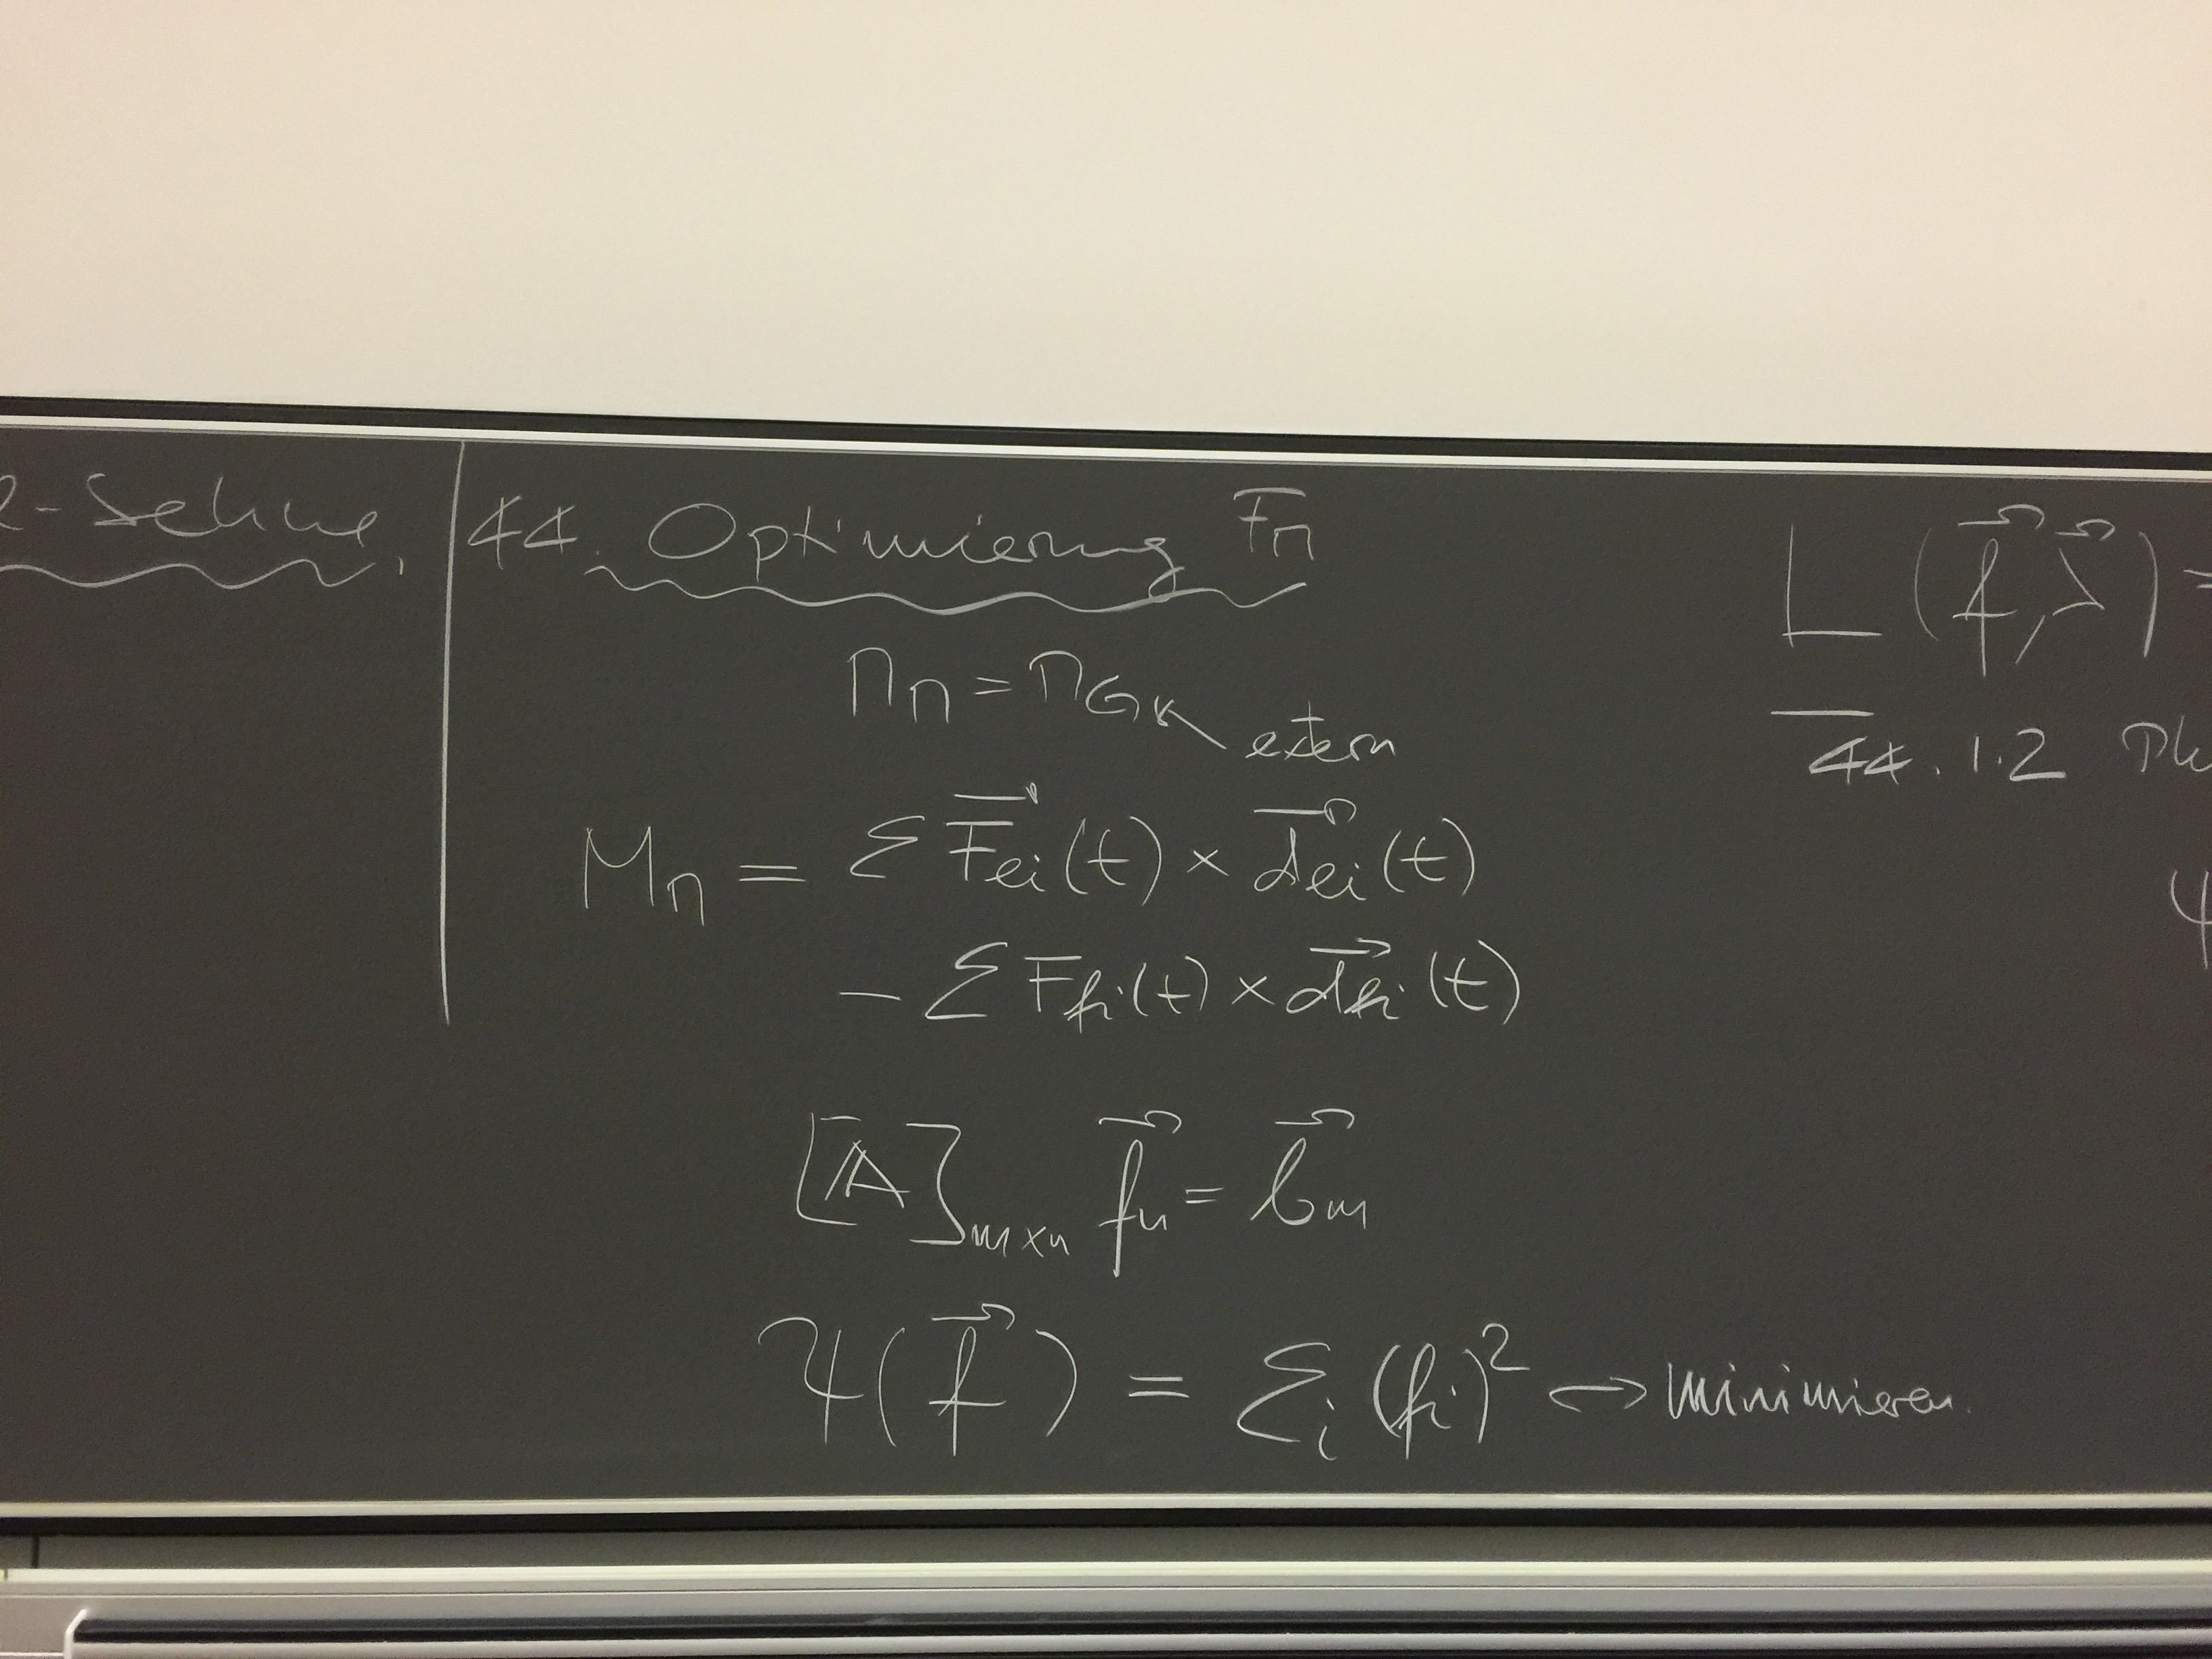 -Sehne.
44. Optimierung F_M
M_M = M_GK extern
M_M = Σ F⃗_ei(t) × d⃗_ei(t)
- Σ F_fi(t) × d⃗_fi(t)
[A]_m×n f⃗_n = b⃗_m
Ψ(f⃗) = Σ_i (f_i)² ↔ minimieren.
L (f⃗, λ⃗) =
44.1.2
Ψ